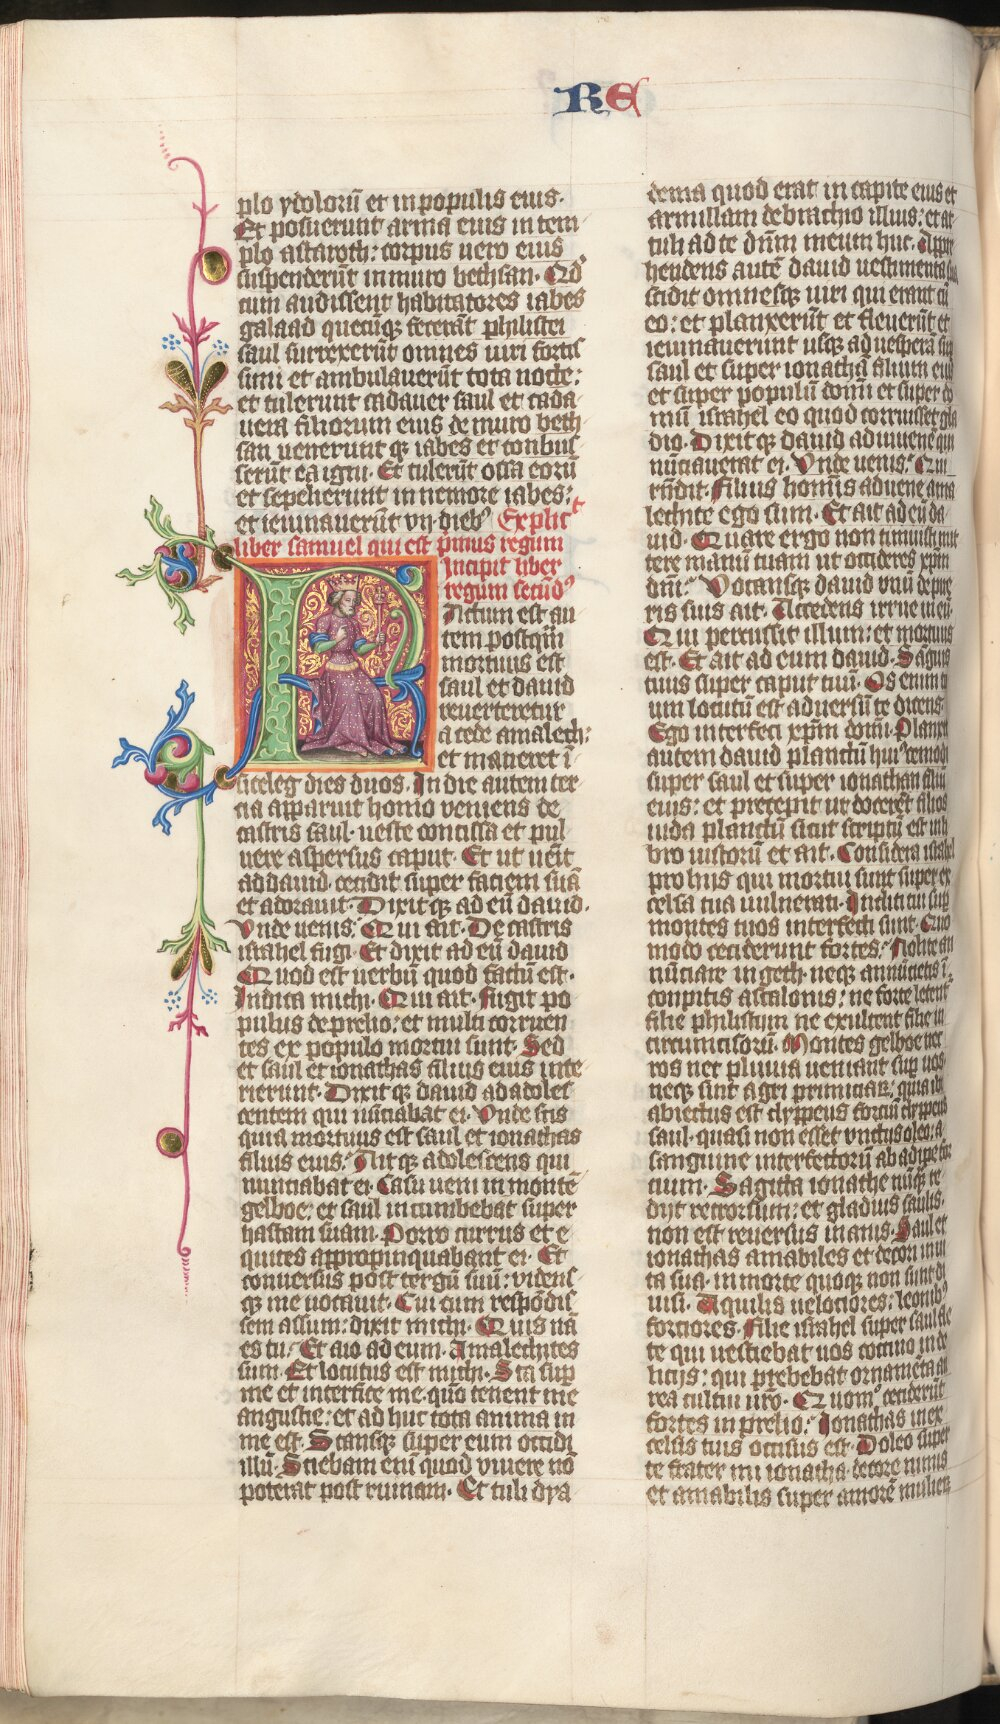 RE
plo ydolorū et in populis eius.
Et posuerunt arma eius in tem
plo astaroth: corpus uero eius
suspenderūt in muro bethsan. Qd'
cum audissent habitatores iabes
galaad quecūqȝ fecerāt philistei
saul surrexerūt omnes uiri fortis
simi et ambulauerūt tota nocte:
et tulerunt cadauer saul et cada
uera filiorum eius de muro beth
san uenerunt qȝ iabes et conbus
serūt ea igni. Et tulerūt ossa eorū
et sepelierunt in nemore iabes:
et ieiunauerūt vij dieb9 Explicit
liber samuel qui est primus regum
Incipit liber
regum secūd9
FActum est au
tem postqm̄
mortuus est
saul et dauid
reuerteretur
a cede amalech:
et maneret ī
siceleg dies duos. In die autem ter
cia apparuit homo veniens de
castris saul. ueste conscissa et pul
uere aspersus caput. Et ut uēit
ad dauid. cecidit super faciem suā
et adorauit. Dixit qȝ ad eū dauid.
Vnde uenis. Qui ait. De castris
israhel fugi. Et dixit ad eū dauid
Quod est uerbū quod factū est.
Indica michi. Qui ait. Fugit po
pulus de prelio: et multi corruen
tes ex populo mortui sunt. Sed
et saul et ionathas filius eius inte
rierunt. Dixit qȝ dauid ad adoles
centem qui nūciabat ei. Vnde scis
quia mortuus est saul et ionathas
filius eius. Ait qȝ adolescens qui
nunciabat ei. Casu ueni in monte
gelboe: et saul incumbebat super
hastam suam. Porro currus et e
quites appropinquabant ei. Et
conuersus post tergū suū: vidensȝ
qȝ me uocauit. Cui cum respōdis
sem assum: dixit michi. Quis nā
es tu. Et aio ad eum. Amalechites
sum. Et locutus est michi. Sta sup
me et interfice me. qūo tenent me
angustie: et ad huc tota anima in
me est. Stansqȝ super eum occidi
illū. Sciebam eni quod viuere nō
poterat post ruinam. Et tuli dya
dema quod erat in capite eius et
armillam de brachio illius: et at
tuli ad te dnm̄ meum huc. Appre
hendens autē dauid uestimenta sua
scidit omnesqȝ uiri qui erant cū
eo: et planxerūt et fleuerūt et
ieiunauerunt usqȝ ad uesperā sup
saul et super ionathā filium eius
et super populū domī et super do
mū israhel eo quod corruisset gla
dio. Dixit qȝ dauid ad iuuenē qui
nūciauerat ei. Vnde uenis. Qui
rn̄dit. Filius hominis aduene ama
lechite ego sum. Et ait ad eū da
uid. Quare ergo non timuisti mit
tere manū tuam ut occideres xpm̄
dn̄i. Vocansqȝ dauid vnū de pue
ris suis ait. Accedens irrue in eū.
Qui percussit illum: et mortuus
est. Et ait ad eum dauid. Sāguis
tuus super caput tuū. Os enim tu
um locutū est aduersū te dicens.
Ego interfeci xpm̄ domī. Planxit
autem dauid planctū hui9cemodi
super saul et super ionathan filiū
eius: et precepit ut docerēt filios
iuda planctū sicut scriptū est in li
bro iustorū et ait. Considera israhel
pro hijs qui mortui sunt super ex
celsa tua uulnerati. Incliti tui sup
montes tuos interfecti sunt. Quo
modo ceciderunt fortes. Nolite an
nūciare in geth. neqȝ annūcietis ī
conpitis ascalonis: ne forte letent
filie philistijm ne exultent filie in
circumcisorū. Montes gelboe nec
ros nec pluuia ueniant sup uos.
neqȝ sint agri primiciaꝝ: quia ibi
abiectus est clyppeus forciū clyppeus
saul. quasi non esset vnctus oleo: a
sanguine interfectorū ab adipe for
cium. Sagitta ionathe nūqȝ re
dijt retrorsum: et gladius saulis.
non est reuersus inanis. Saul et
ionathas amabiles et decori in ui
ta sua. in morte quoqȝ non sunt di
uisi. Aquilis uelociores: leonib9
forciores. Filie israhel super saul fle
te qui uestiebat uos coccino in de
licijs: qui prebebat ornamēta au
rea cultui uro. Quom9 ceciderūt
fortes in prelio. Ionathas in ex
celsis tuis occisus est. Doleo super
te frater mi ionatha. decore nimis
et amabilis super amorē mulierū